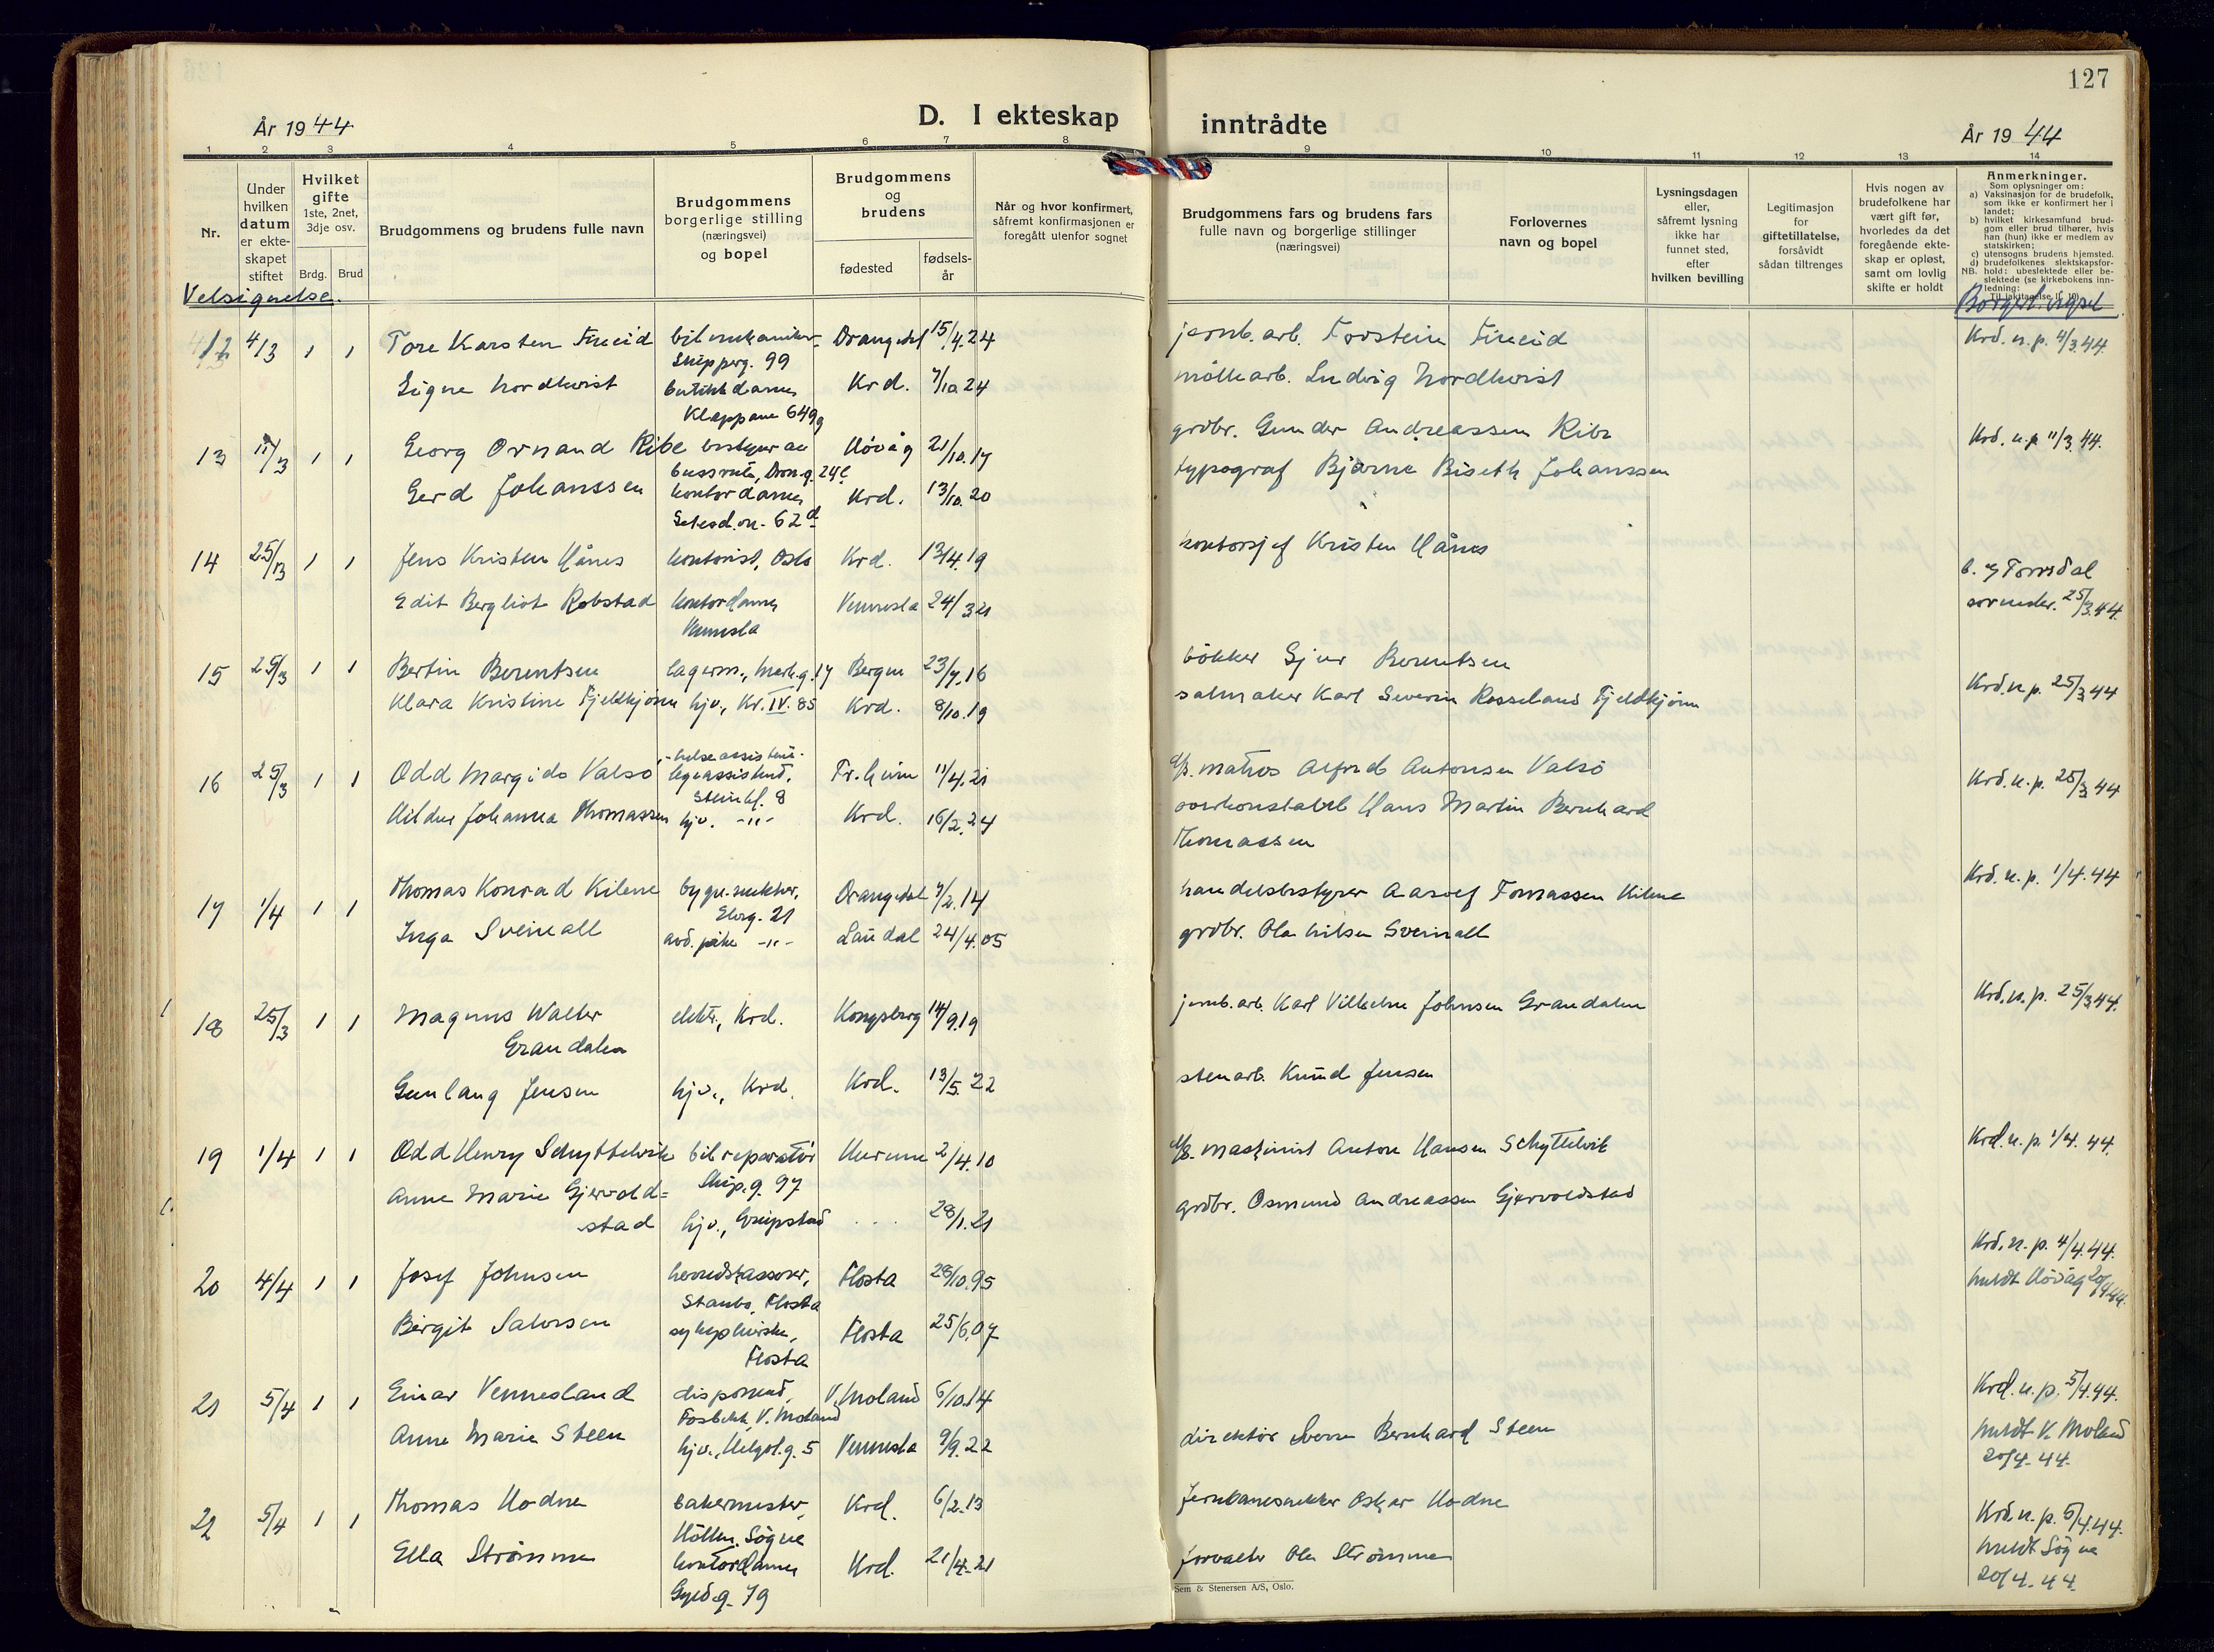 127
År 1944
D. I ekteskap
inntrådte
År 1944
1 2 3 4 5 6 7 8 9 10 11 12 13 14
Nr.
Under
hvilken
datum
er ekte-
skapet
stiftet
Hvilket
gifte
1ste, 2net,
3dje osv.
Brdg. Brud
Brudgommens og brudens fulle navn
Brudgommens
borgerlige stilling
(næringsvei)
og bopel
Brudgommens
og
brudens
fødested
fødsels-
år
Når og hvor konfirmert,
såfremt konfirmasjonen er
foregått utenfor sognet
Brudgommens fars og brudens fars
fulle navn og borgerlige stillinger
(næringsvei)
Forlovernes
navn og bopel
Lysningsdagen
eller,
såfremt lysning
ikke har
funnet sted,
efter
hvilken bevilling
Legitimasjon
for
giftetillatelse,
forsåvidt
sådan tiltrenges
Hvis nogen av
brudefolkene har
vært gift før,
hvorledes da det
foregående ekte-
skap er opløst,
samt om lovlig
skifte er holdt
Anmerkninger.
Som oplysninger om:
a) Vaksinasjon for de brudefolk,
som ikke er konfirmert her i
landet;
b) hvilket kirkesamfund brud-
gom eller brud tilhører, hvis
han (hun) ikke er medlem av
statskirken;
c) utensogns brudens hjemsted.
d) brudefolkenes slektskapsfor-
NB. hold: ubeslektede eller be-
slektede (se kirkebokens inn-
ledning:
Velsignelse.
Borgerl. vigsel
12 4/3 1 1 Tore Karsten bilmekaniker Drangedal 15/4.24 jernb. arb. Torstein Krd. n. p. 4/3.44.
Skipperg. 99
Signe Nordkvist butikkdame Krd. 7/10.24 møllearb. Ludvig Nordkvist
Klappane 649g
13 11/3 1 1 Georg Ornand Ribe bestyrer av Høvåg 21/10.17 grdbr. Gunder Andreassen Ribe Krd. n. p. 11/3.44.
bussrute, Dron.g. 24c
Gerd Johanssen kontordame Krd. 13/10.20 typograf Bjarne Biseth Johanssen
Setesd.v. 62d
14 25/3 1 1 Jens Kristen Hånes kontorist, Oslo Krd. 13/4.19 kontorsjef Kristen Hånes
b. ef Tomsdal
Edit Bergliot Robstad kontordame Vennesla 24/3.21 sorenskr. 25/3.44.
Vennesla
15 25/3 1 1 Bertin Berentsen lagerm., Mark.g. 17 Bergen 23/7.16 bøkker Sjur Berentsen Krd. n. p. 25/3.44
Klara Kristine Fjeldkjønn hjv., Kr. IV. 85 Krd. 8/10.19 salmaker Karl Severin Rosseland Fjeldkjønn
16 25/3 1 1 Odd Margido Valsø helseassistent Tr.heim 11/4.21 matros Alfred Antonsen Valsø Krd. n. p. 25/3.44
legeassistent,
Steinkl. 8
Hildur Johanna Thomassen hjv. -"- Krd. 16/2.24 overkonstabel Hans Martin Bernhard
Thomassen
17 1/4 1 1 Thomas Konrad Kilene bygn.snekker, Drangedal 7/2.14 handelsbestyrer Aasolf Tomassen Kilene Krd. n. p. 1/4.44
Elvg. 21
Inga Sveinall avd. pike -"- Laudal 24/4.05 grdbr. Ola Nilsen Sveinall
18 25/3 1 1 Magnus Walter elektr., Krd. Kongsberg 14/9.19 jernb. arb. Karl Vilhelm Johnsen Grandalen Krd. n. p. 25/3.44.
Grandalen
Gunlaug Jensen hjv., Krd. Krd. 13/5.22 stenarb. Knud Jensen
19 1/4 1 1 Odd Henry Schyttelvik bilreparatør Hurum 2/4.10 maskinist Anton Hansen Schyttelvik Krd. n. p. 1/4.44.
Skip.g. 97
Anne Marie Gjervold= grdbr. Osmund Andreassen Gjervoldstad
stad hjv., Greipstad .... 28/1.21
20 4/4 1 1 Josef Johnsen herredskasserer, Flosta 28/10.95 Krd. n. p. 4/4.44.
Staubo, Flosta meldt Høvåg 20/4.44.
Birgit Salvesen sykepleierske, Flosta 25/6.07
Flosta
21 5/4 1 1 Einar Vennesland disponent, V. Moland 6/10.14 Krd. n. p. 5/4.44.
Fosbekk, V. Moland
Anne Marie Steen hjv., Helgol.g. 5 Vennesla 9/9.22 direktør Sverre Bernhard Steen meldt V. Moland
20/4.44.
22 5/4 1 1 Thomas Hodne bakermester, Krd. 6/2.13 Jernbanesnekker Oskar Hodne Krd. n. p. 5/4.44.
Höllen, Søgne
Ella Strømme kontordame Krd. 21/4.21 forvalter Ola Strømme meldt Søgne
Gyld.g. 79 20/4.44.
Sem & Stenersen A/S, Oslo.